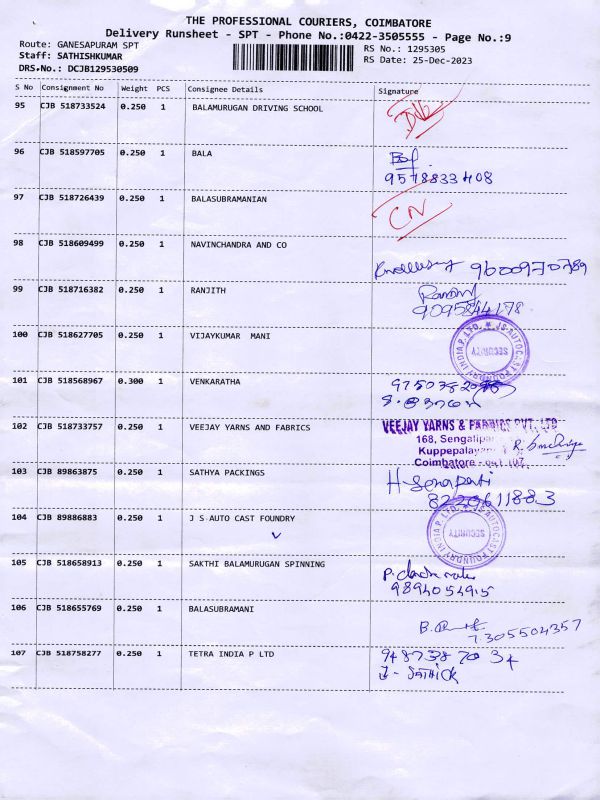 THE PROFESSIONAL COURIERS, COIMBATORE
Delivery Runsheet - SPT - Phone No.:0422-3505555 - Page No.:9
Route: GANESAPURAM SPT RS No.: 1295305
Staff: SATHISHKUMAR RS Date: 25-Dec-2023
DRS No.: DCJB129530509
S No Consignment No Weight PCS Consignee Details Signature
95 CJB 518733524 0.250 1 BALAMURUGAN DRIVING SCHOOL
96 CJB 518597705 0.250 1 BALA
9578833408
97 CJB 518726439 0.250 1 BALASUBRAMANIAN CN
98 CJB 518609499 0.250 1 NAVINCHANDRA AND CO
9600970789
99 CJB 518716382 0.250 1 RANJITH
9095844178
100 CJB 518627705 0.250 1 VIJAYKUMAR MANI
JS AUTOCAST FOUNDRY INDIA P. LTD. SECURITY
101 CJB 518568967 0.300 1 VENKARATHA
102 CJB 518733757 0.250 1 VEEJAY YARNS AND FABRICS VEEJAY YARNS & FABRICS PVT. LTD
168,
Coimbatore
103 CJB 89863875 0.250 1 SATHYA PACKINGS H. Senapati
8220611883
104 CJB 89886883 0.250 1 J S AUTO CAST FOUNDRY
JS AUTOCAST FOUNDRY INDIA P. LTD. SECURITY
105 CJB 518658913 0.250 1 SAKTHI BALAMURUGAN SPINNING
9894054915
106 CJB 518655769 0.250 1 BALASUBRAMANI
7305504357
107 CJB 518758277 0.250 1 TETRA INDIA P LTD 9487387034
SATHICK